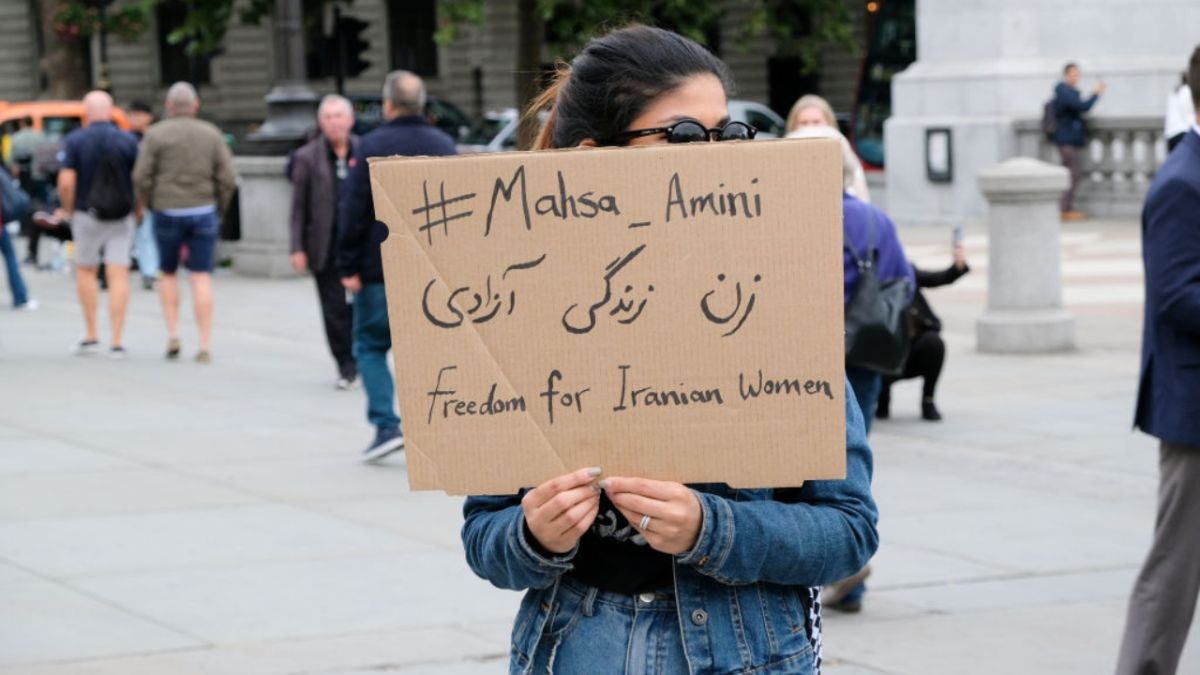 #Mahsa_Amini
زن زندگی آزادی
Freedom for Iranian Women